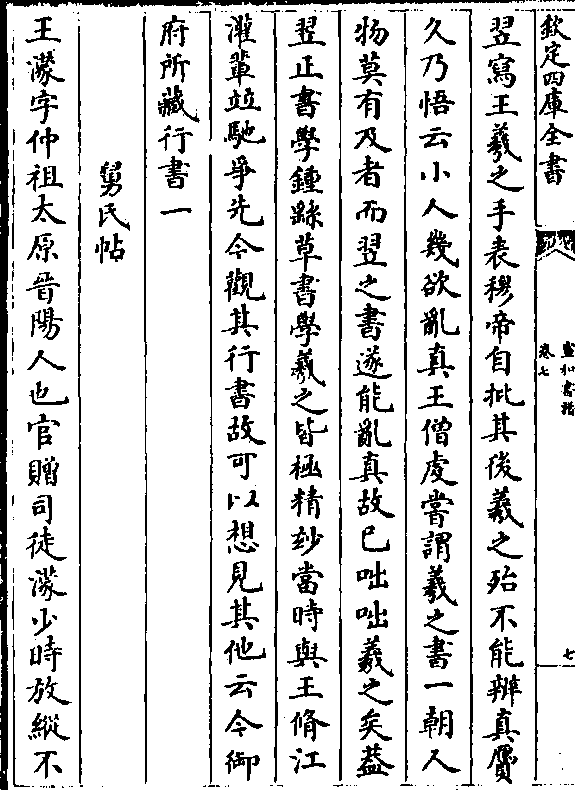 欽定四庫全書
宣和書譜
卷七
七
翌寫王羲之手表穆帝自批其後羲之殆不能辨真贋
久乃悟云小人幾欲亂真王僧虔嘗謂羲之書一朝人
物莫有及者而翌之書遂能亂真故已咄咄羲之矣蓋
翌正書學鍾繇草書學羲之皆極精妙當時與王脩江
灌輩竝馳爭先今觀其行書故可以想見其他云今御
府所藏行書一
舅氏帖
王濛字仲祖太原晉陽人也官贈司徒濛少時放縱不